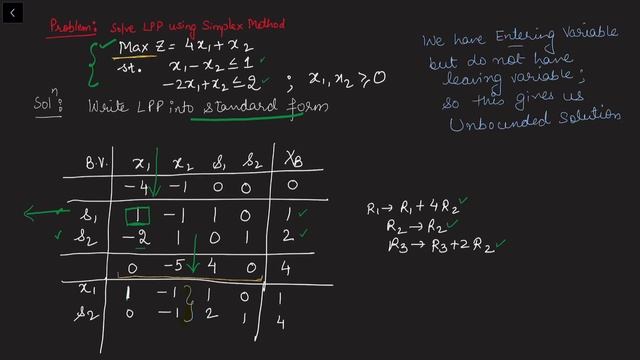 Problem: Solve LPP using Simplex Method
Max Z = 4x₁ + x₂
st. x₁ - x₂ ≤ 1
-2x₁ + x₂ ≤ 2 ; x₁, x₂ ≥ 0
Solⁿ: Write LPP into standard form
We have Entering Variable
but do not have
leaving variable;
so this gives us
Unbounded Solution
B.V. x₁ x₂ s₁ s₂ X_B
-4 -1 0 0 0
s₁ 1 -1 1 0 1
s₂ -2 1 0 1 2
0 -5 4 0 4
x₁ 1 -1 1 0 1
s₂ 0 -1 2 1 4
R₁ → R₁ + 4R₂
R₂ → R₂
R₃ → R₃ + 2R₂